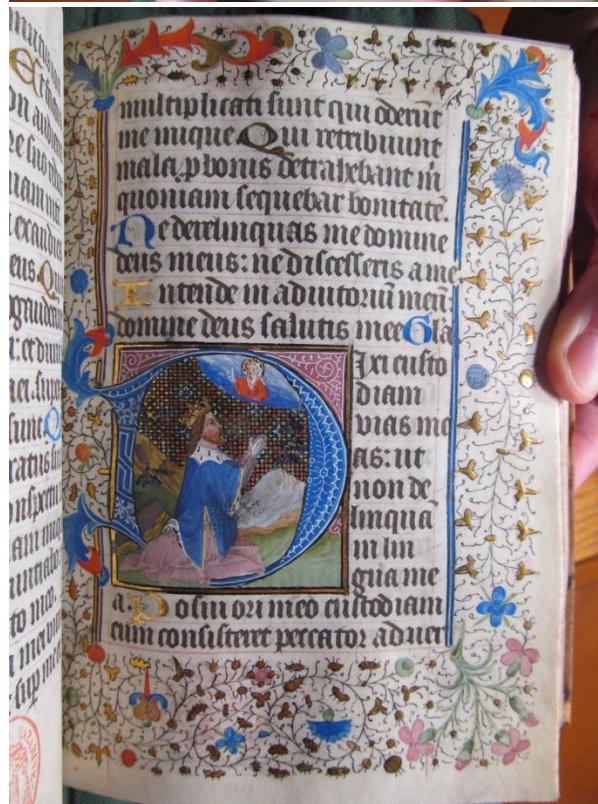 multiplicati sunt qui oderūt
me inique Qui retribuunt
mala p bonis detrahebant m̄
quoniam sequebar bonitatē.
Ne derelinquas me domine
deus meus: ne discesseris a me
Intende in adiutoriū meū:
domine deus salutis mee Gla
Dixi custo
diam
vias me
as: ut
non de
linqua
m lin
gua me
a. Posui ori meo custodiam
cum consisteret peccator aduer